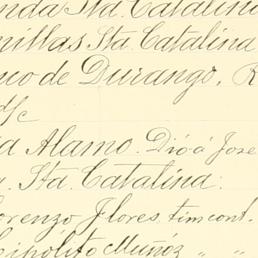 nda Sta. Catalina
nillas Sta. Catalina
nco de Durango, R
d/c
a Alamo. Dió á Jose
. Sta. Catalina.
orenzo Flores timcont.
ipólito Muñoz " "